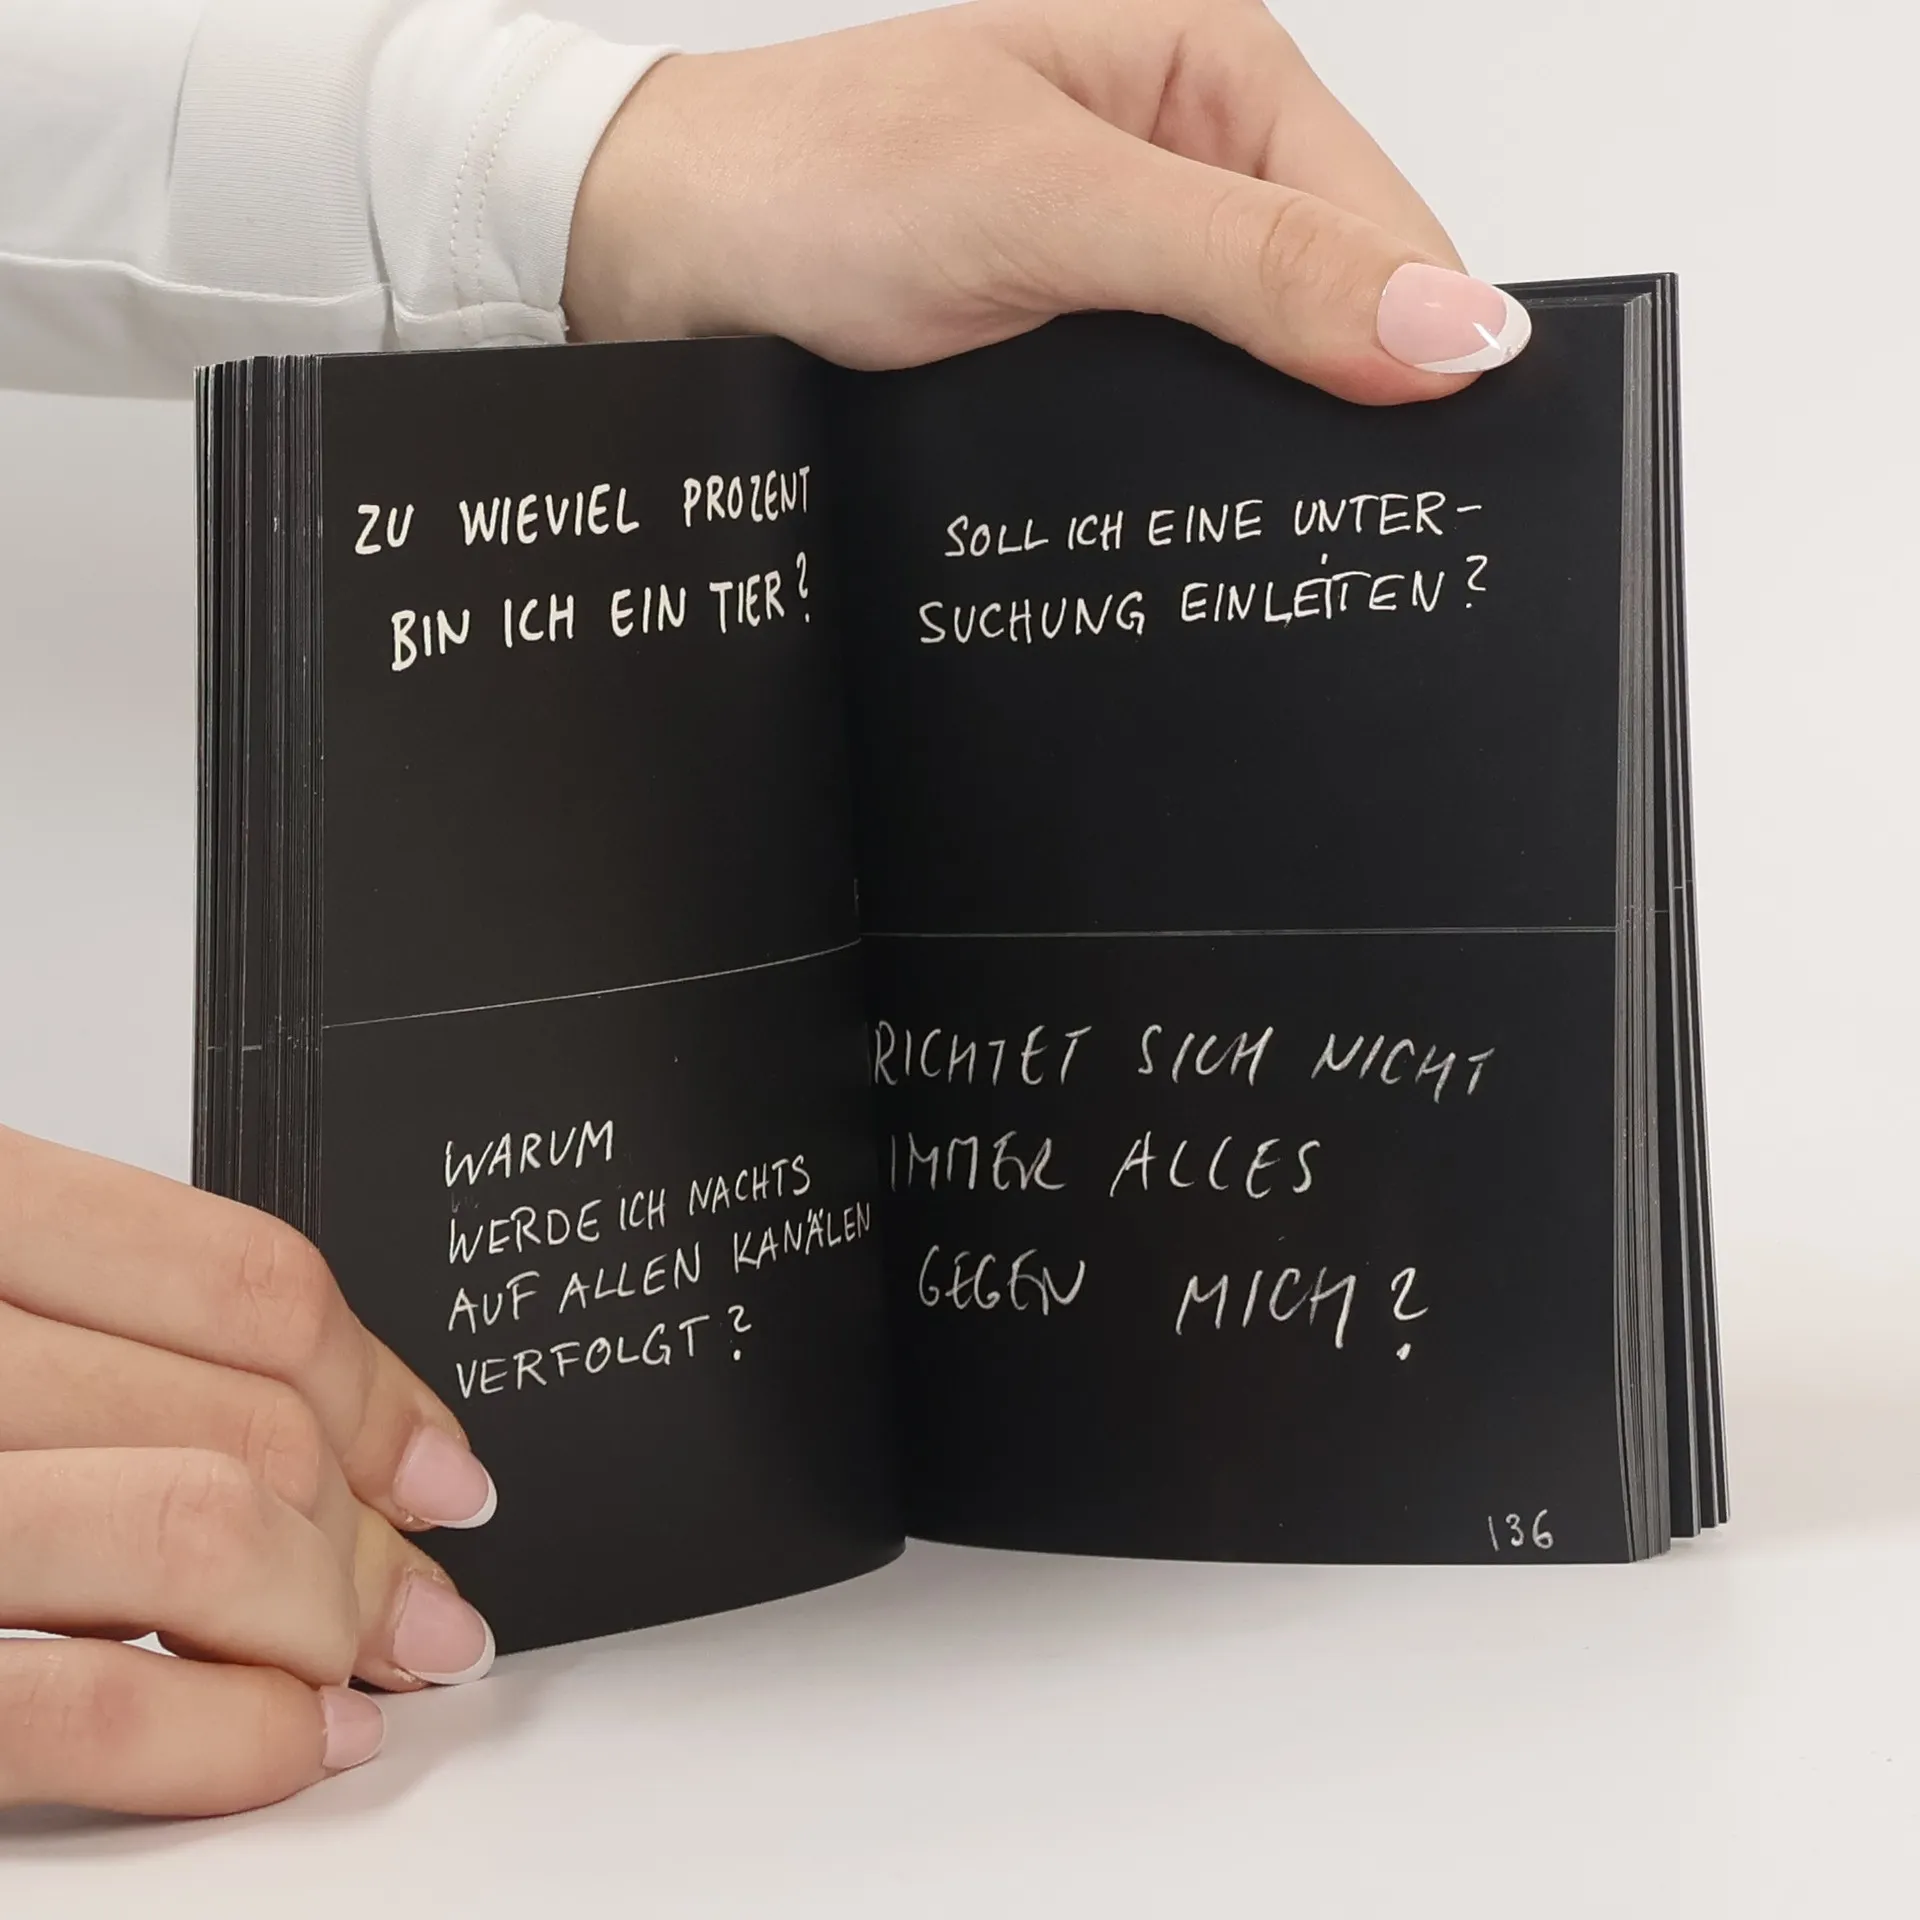 ZU WIEVIEL PROZENT
BIN ICH EIN TIER?
WARUM
WERDE ICH NACHTS
AUF ALLEN KANÄLEN
VERFOLGT?
SOLL ICH EINE UNTER-
SUCHUNG EINLEITEN?
RICHTET SICH NICHT
IMMER ALLES
GEGEN MICH?
136